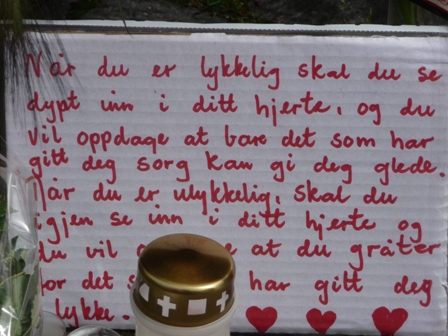 Når du er lykkelig skal du se
dypt inn i ditt hjerte, og du
vil oppdage at bare det som har
gitt deg sorg kan gi deg glede.
Når du er ulykkelig, skal du
igjen se inn i ditt hjerte og
du vil at du gråter
for det har gitt deg
lykke.